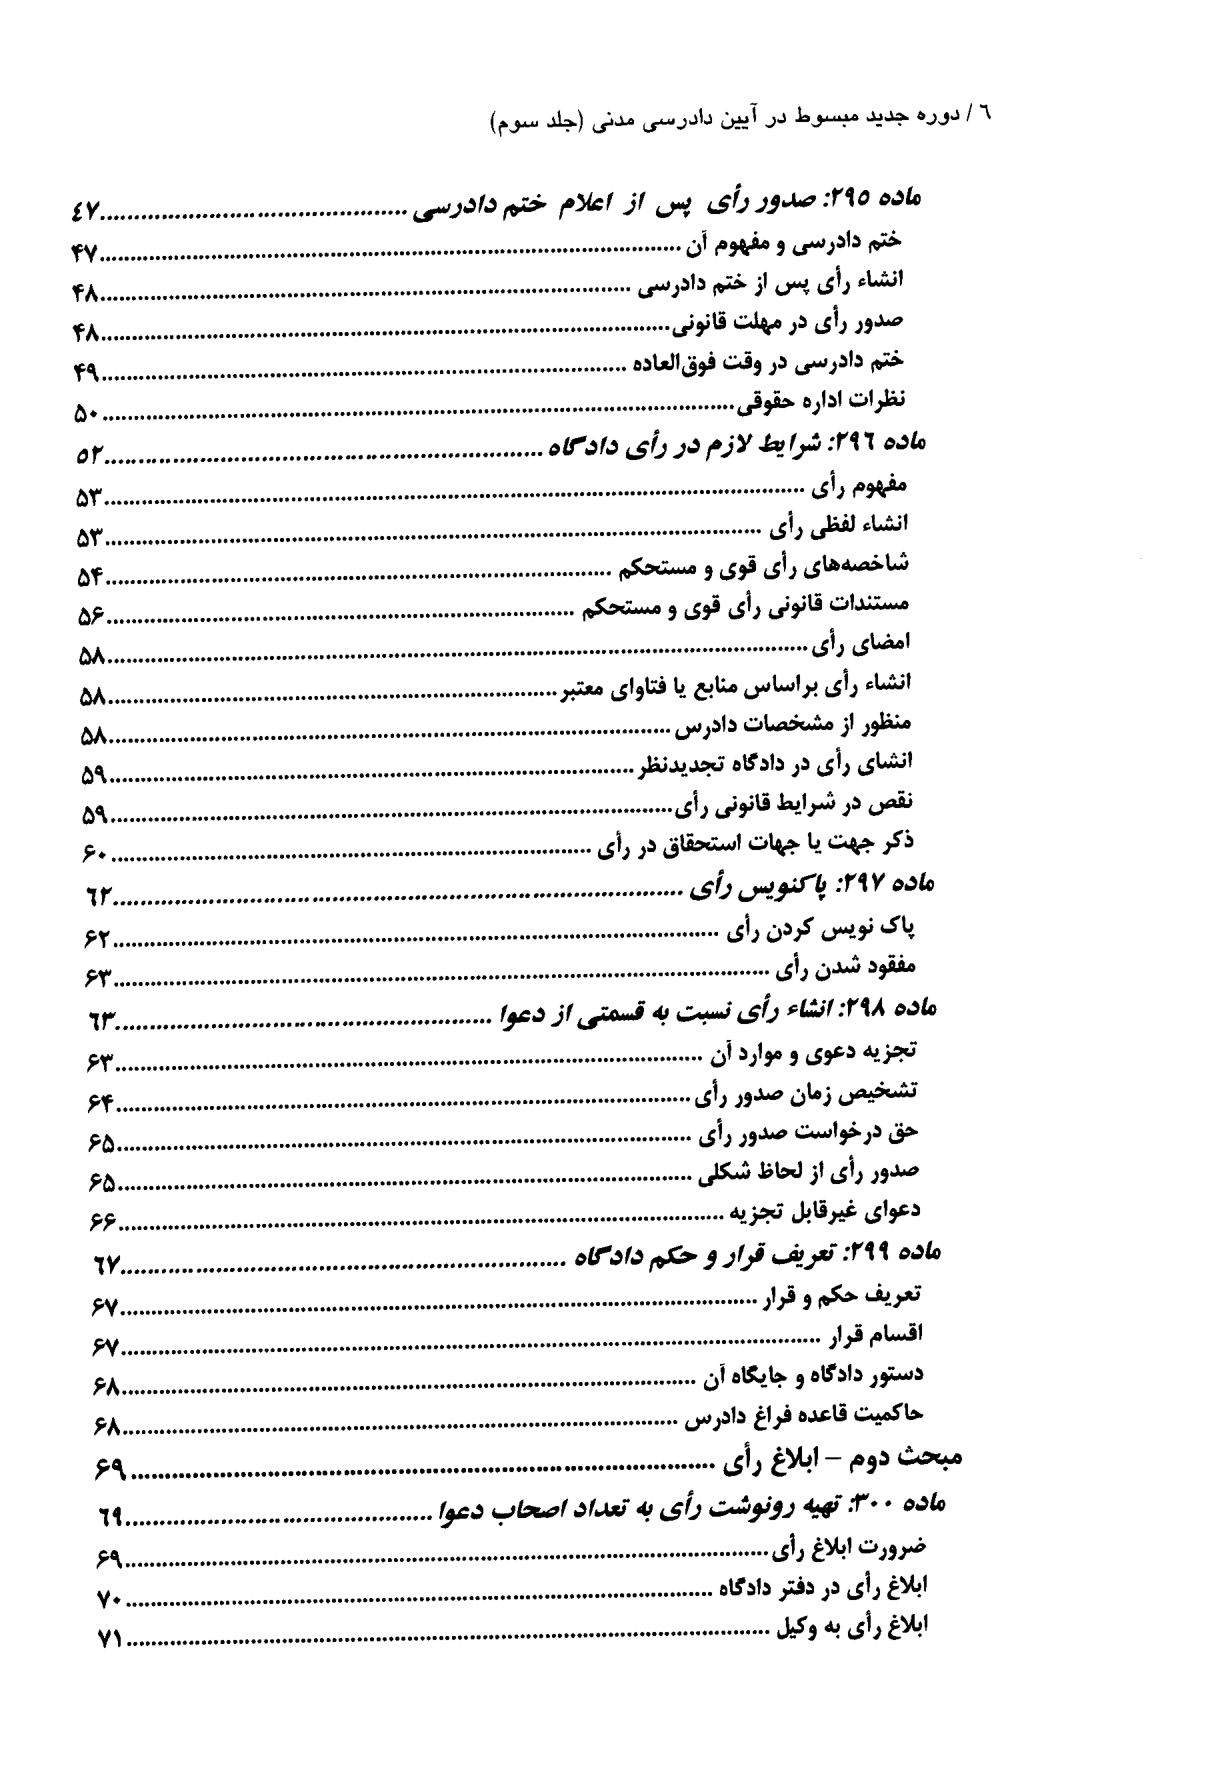 ٦ / دوره جدید مبسوط در آیین دادرسی مدنی (جلد سوم)
ماده ۲۹٥: صدور رأی پس از اعلام ختم دادرسی ........ ٤۷
ختم دادرسی و مفهوم آن ........ ۴۷
انشاء رأی پس از ختم دادرسی ........ ۴۸
صدور رأی در مهلت قانونی ........ ۴۸
ختم دادرسی در وقت فوق‌العاده ........ ۴۹
نظرات اداره حقوقی ........ ۵۰
ماده ۲۹٦: شرایط لازم در رأی دادگاه ........ ٥۲
مفهوم رأی ........ ۵۳
انشاء لفظی رأی ........ ۵۳
شاخصه‌های رأی قوی و مستحکم ........ ۵۴
مستندات قانونی رأی قوی و مستحکم ........ ۵۶
امضای رأی ........ ۵۸
انشاء رأی براساس منابع یا فتاوای معتبر ........ ۵۸
منظور از مشخصات دادرس ........ ۵۸
انشای رأی در دادگاه تجدیدنظر ........ ۵۹
نقص در شرایط قانونی رأی ........ ۵۹
ذکر جهت یا جهات استحقاق در رأی ........ ۶۰
ماده ۲۹۷: پاکنویس رأی ........ ٦۲
پاک نویس کردن رأی ........ ۶۲
مفقود شدن رأی ........ ۶۳
ماده ۲۹۸: انشاء رأی نسبت به قسمتی از دعوا ........ ٦۳
تجزیه دعوی و موارد آن ........ ۶۳
تشخیص زمان صدور رأی ........ ۶۴
حق درخواست صدور رأی ........ ۶۵
صدور رأی از لحاظ شکلی ........ ۶۵
دعوای غیرقابل تجزیه ........ ۶۶
ماده ۲۹۹: تعریف قرار و حکم دادگاه ........ ٦۷
تعریف حکم و قرار ........ ۶۷
اقسام قرار ........ ۶۷
دستور دادگاه و جایگاه آن ........ ۶۸
حاکمیت قاعده فراغ دادرس ........ ۶۸
مبحث دوم – ابلاغ رأی ........ ۶۹
ماده ۳۰۰: تهیه رونوشت رأی به تعداد اصحاب دعوا ........ ٦۹
ضرورت ابلاغ رأی ........ ۶۹
ابلاغ رأی در دفتر دادگاه ........ ۷۰
ابلاغ رأی به وکیل ........ ۷۱